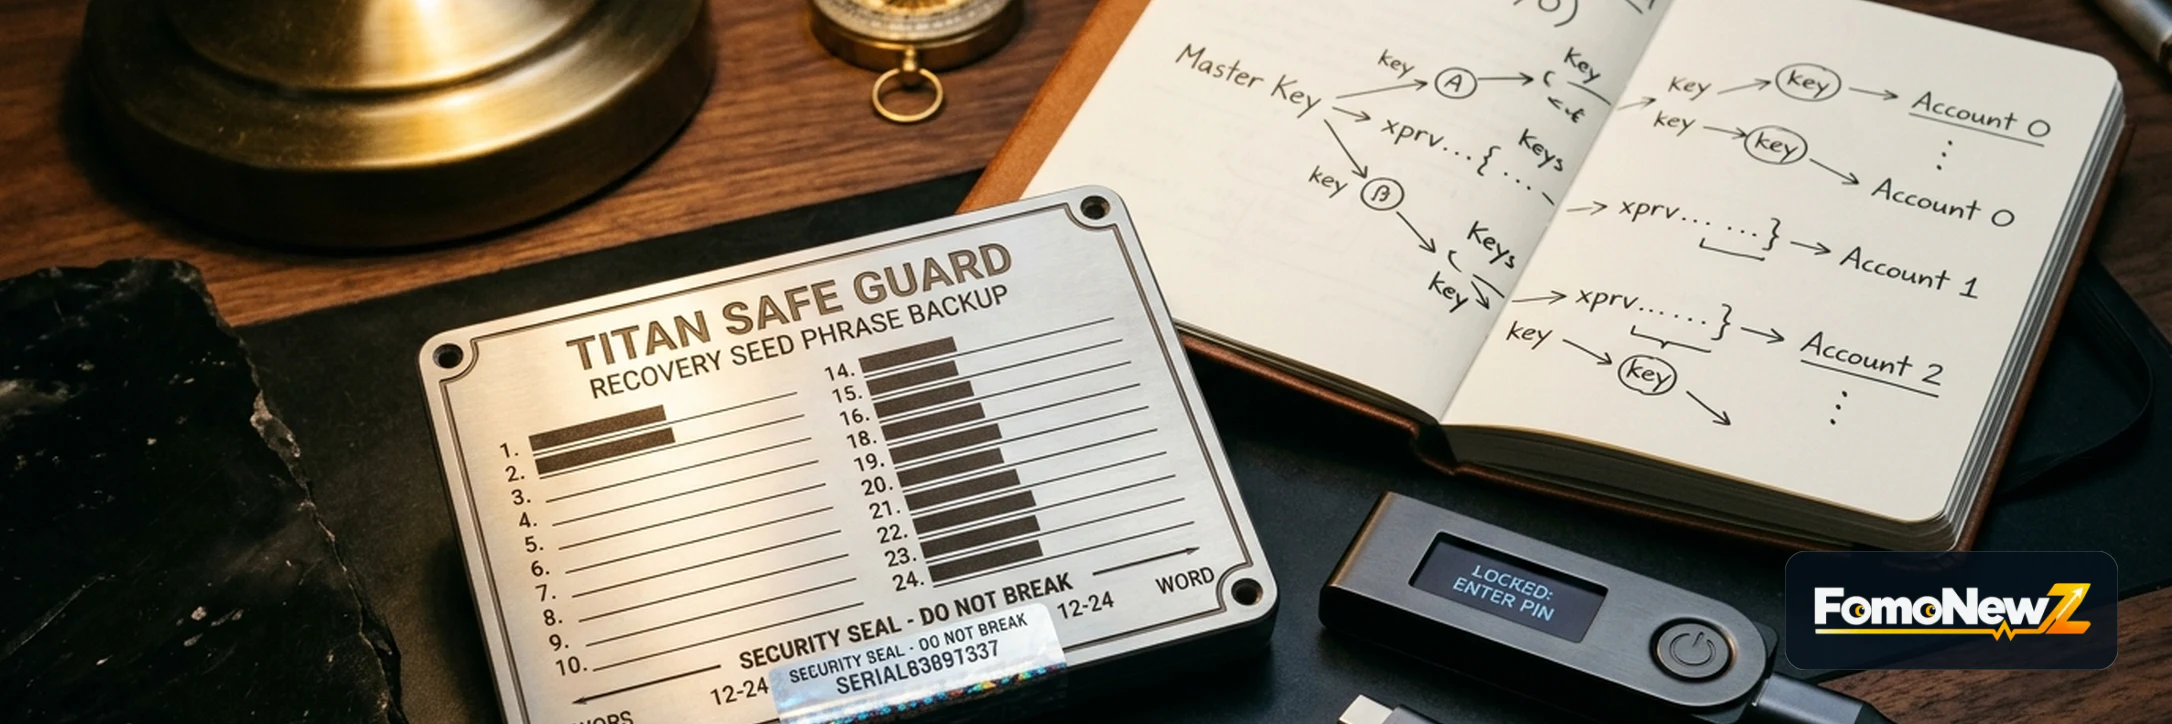 TITAN SAFE GUARD
RECOVERY SEED PHRASE BACKUP
1.
2.
3.
4.
5.
6.
7.
8.
9.
10.
14.
15.
16.
18.
19.
20.
21.
22.
23.
24.
SECURITY SEAL - DO NOT BREAK
12-24
12-24
WORD
SECURITY SEAL - DO NOT BREAK
Master Key
key A
key
xprv... { Keys
key β
Keys
key
key key Account 0
key key Account 0
xprv... ...} Account 1
xprv......} Account 2
key key
LOCKED:
ENTER PIN
FomoNewZ